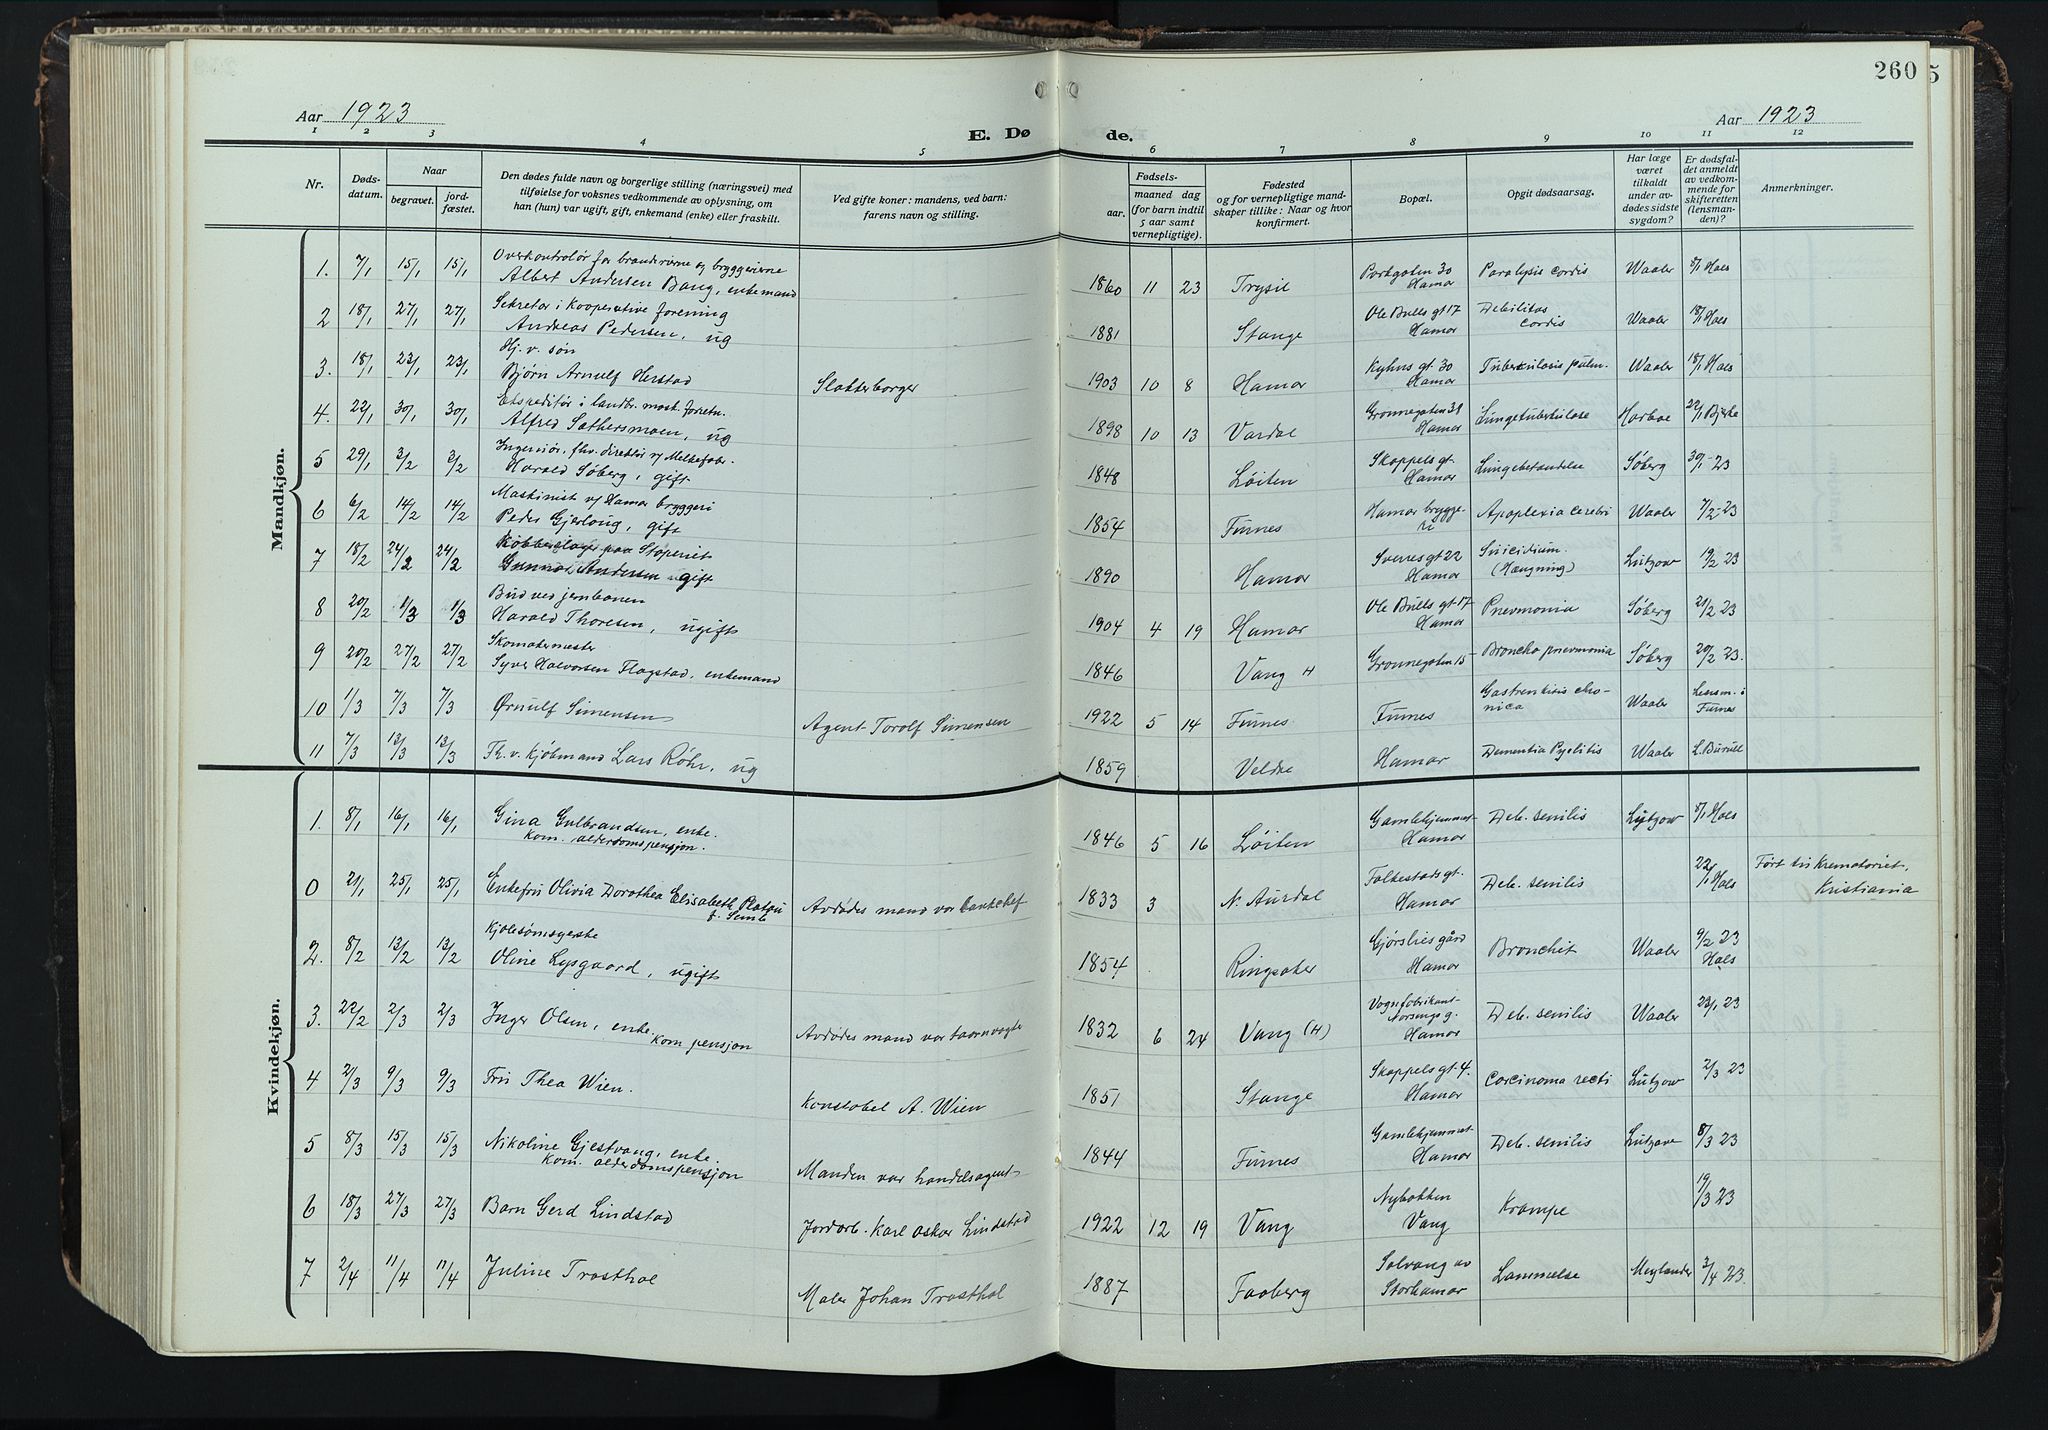 260
5
Aar 1923
E. Dø
de.
Aar 1923
1 2 3 4 5 6 7 8 9 10 11 12
Nr.
Døds-
datum.
Naar
begravet.
jord-
fæstet.
Den dødes fulde navn og borgerlige stilling (næringsvei) med
tilføielse for voksnes vedkommende av oplysning, om
han (hun) var ugift, gift, enkemand (enke) eller fraskilt.
Ved gifte koner: mandens, ved barn:
farens navn og stilling.
Fødsels-
aar.
maaned dag
(for barn indtil
5 aar samt
vernepligtige).
Fødested
og for vernepligtige mand-
skaper tillike: Naar og hvor
konfirmert.
Bopæl.
Opgit dødsaarsag.
Har læge
været
tilkaldt
under av-
dødes sidste
sygdom?
Er dødsfal-
det anmeldt
av vedkom-
mende for
skifteretten
(lensman-
den)?
Anmerkninger.
Mandkjøn.
1. 7/1 15/1 15/1 Overkontrolør for brænderierne og bryggerierne
Albert Andersen Bang, enkemand
1860 11 23 Trysil Parkgaten 30
Hamar Paralysis cordis Waaler 8/1 Haes
2 18/1 27/1 27/1 Sekretær i Kooperative forening
Andreas Pedersen, ug
1881 Stange Ole Bulls gt 17
Hamar Debilitas
cordis Waaler 18/1 Haes
3. 18/1 23/1 23/1 Hj. v. søn
Bjørn Arnulf Herstad Slakterborger
1903 10 8 Hamar Kyhns gt. 30
Hamar Tuberkulosis pulm. Waaler 18/1 Haes
4. 22/1 30/1 30/1 Ekspeditør i landbr. mask. forretn.
Alfred Sæthersmoen, ug
1898 10 13 Vardal Grønnegaten 31
Hamar Lungetuberkulose Harboe 22/1 Bjerke
5 29/1 3/2 3/2 Ingeniør, fhv. direktør v/ Melkefabr.
Harald Søberg, gift
1848 Løiten Skappels gt.
Hamar Lungebetændelse Søberg 30/1-23
6 6/2 14/2 14/2 Maskinist v/ Hamar bryggeri
Peder Gjerlaug, gift
1854 Furnes Hamar brygge-
ri Apoplexia cerebri Waaler 7/2-23
7 18/2 24/2 24/2 Kobberslager paa Støperiet
Gunnar Andersen gift
1890 Hamar Sverres gt 22
Hamar Suicidium.
(Hængning) Lützow 19/2 23
8 20/2 1/3 1/3 Bud ved jernbanen
Harald Thoresen, ugift
1904 4 19 Hamar Ole Bulls gt 17
Hamar Pnevmonia Søberg 21/2 23
9 20/2 27/2 27/2 Skomakermester
Syver Halvorsen Flagstad, enkemand
1846 Vang H Grønnegaten 15 Broncho pnevmonia Søberg 20/2 23.
10 1/3 7/3 7/3 Ørnulf Simensen Agent Torolf Simensen
1922 5 14 Furnes Furnes Gastrentisis chro-
nica Waaler Lensm. i
Furnes
11 7/3 13/3 13/3 Fh. v. kjøbmand Lars Røhr, ug
1859 Veldre Hamar Dementia Pyelitis Waaler
Kvindekjøn.
1. 8/1 16/1 16/1 Gina Gulbrandsen, enke.
Kom. alderdomspensjon.
1846 5 16 Løiten Gamlehjemmet
Hamar Deb. senilis Lützow 8/1 Haes
0 21/1 25/1 25/1 Enkefru Olivia Dorothea Elisabeth Platou
f. Semb Avdødes mand var bankchef
1833 3 N. Aurdal Falkestads gt.
Hamar Deb. senilis 22/1 Haes Ført til Krematoriet,
Kristiania
2. 8/2 13/2 13/2 Kjolesømsyerske
Oline Lysgaard, ugift
1854 Ringsaker Gjørslies gård
Hamar Bronchit Waaler 9/2 23
Haes
3. 22/2 2/3 2/3 Inger Olsen, enke.
Kom. pensjon Avdødes mand var taarnvogter
1832 6 24 Vang (H) Vognfabrikant
Norsengs g.
Hamar Deb. senilis Waaler 23/1 23
4 2/3 9/3 9/3 Fru Thea Wien. Konstabel A. Wien
1851 Stange Skappels gt 4.
Hamar Carcinoma recti Lützow 2/3 23
5 8/3 15/3 15/3 Nikoline Gjestvang, enke.
Kom. alderdomspensjon Manden var handelsagent
1844 Furnes Gamlehjemmet
Hamar Deb. senilis Lützow 8/3 23
6 18/3 27/3 27/3 Barn Gerd Lindstad Jordarb. Karl Oskar Lindstad
1922 12 19 Vang Nybakken
Vang Krampe 19/3 23
7 2/4 11/4 11/4 Juline Trosthol Maler Johan Trosthol
1887 Faaberg Solvang av
Storhamar Lammelse Meylænder 3/4 23.